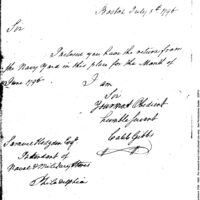 Boston July 5th 1796
Sir
I inclose you have the return from
the Navy Yard in this place for the Month of
June 1796.
I am
Sir
Your most Obedient
humble Servant
Caleb Gibbs
Samuel Hodgdon Esqr
Intendant of
Naval & Military Stores
Philadelphia